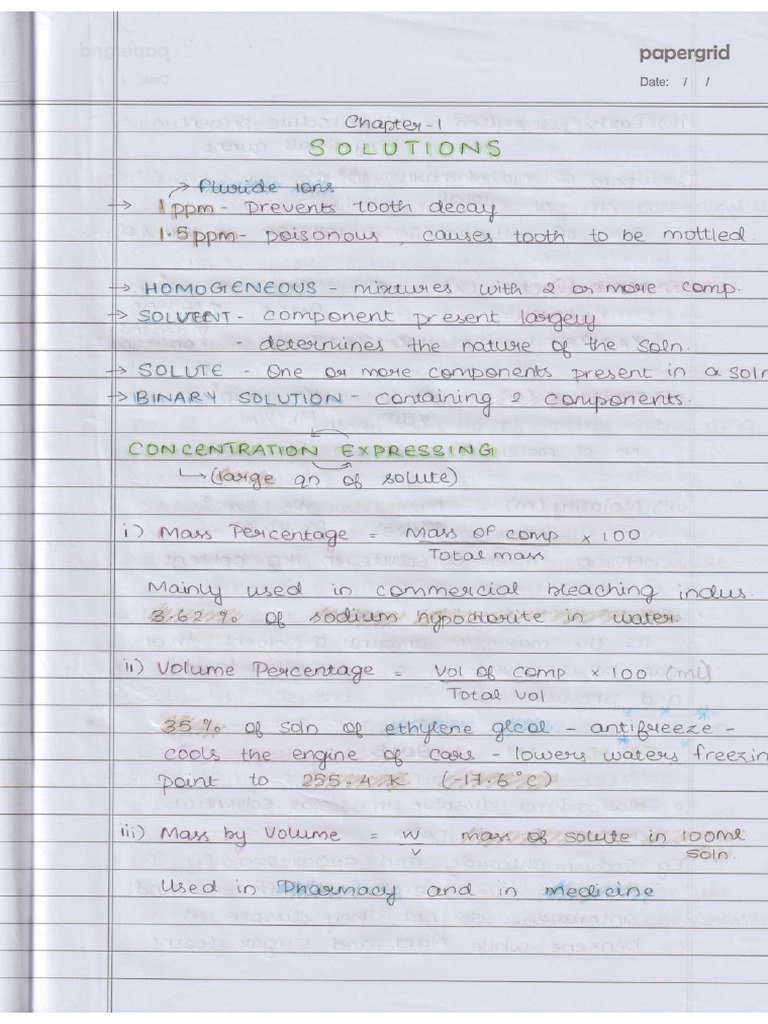 papergrid
Date: / /
Chapter-1
SOLUTIONS
Fluride ions
→ 1ppm - Prevents tooth decay
1.5ppm - poisonous, causes tooth to be mottled.
→ HOMOGENEOUS - mixtures with 2 or more comp.
→ SOLVENT - component present largely
- determines the nature of the soln.
→ SOLUTE - One or more components present in a soln
→ BINARY SOLUTION - containing 2 components.
CONCENTRATION EXPRESSING
(large qn of solute)
i) Mass Percentage = Mass of comp × 100
Total mass
Mainly used in commercial bleaching indus.
3.62% of sodium hypoclorite in water.
ii) Volume Percentage = Vol of comp × 100 (ml)
Total vol
35% of soln of ethylene glcol - antifreeze -
cools the engine of cars - lowers waters freezin
point to 255.4 K (-17.6°C)
iii) Mass by Volume = W mass of solute in 100ml
V soln.
Used in Pharmacy and in medicine